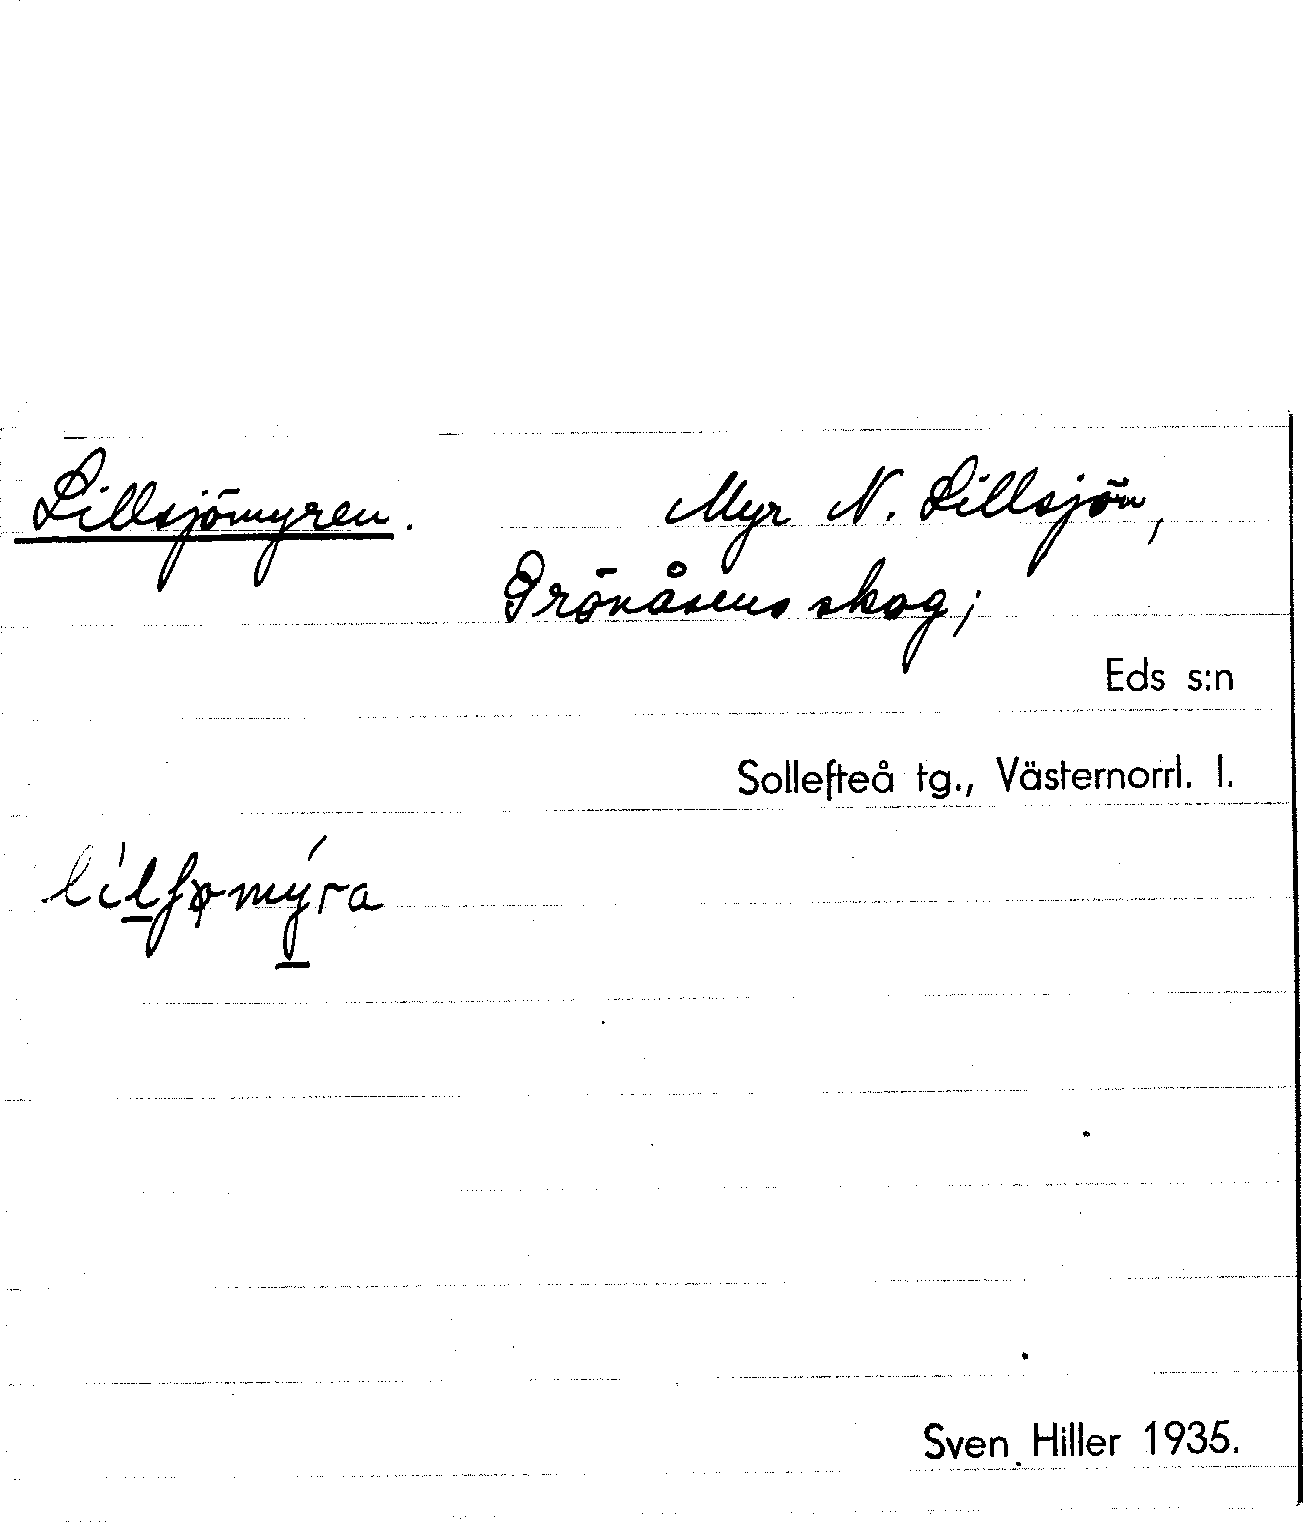 Lillsjömyren. Myr N. Lillsjön,
Grönåsens skog;
Eds s:n
Sollefteå tg., Västernorrl. l.
Sven Hiller 1935.